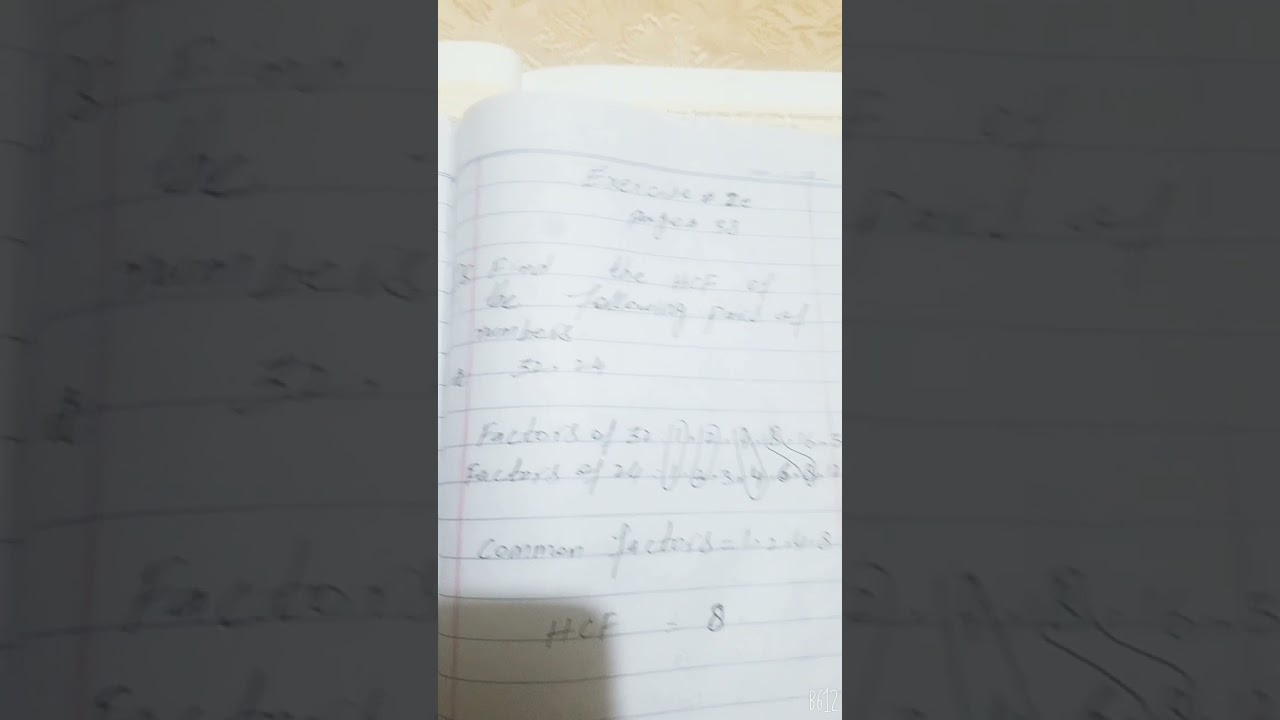 Exercise # 2c
page # 33
Find the HCF of
the following pair of
numbers
32, 24
Factors of 32 1, 2, 4, 8, 16, 3
Factors of 24 = 1, 2, 3, 4, 6, 8, 12
Common factors = 1, 2, 4, 8
HCF = 8
B612